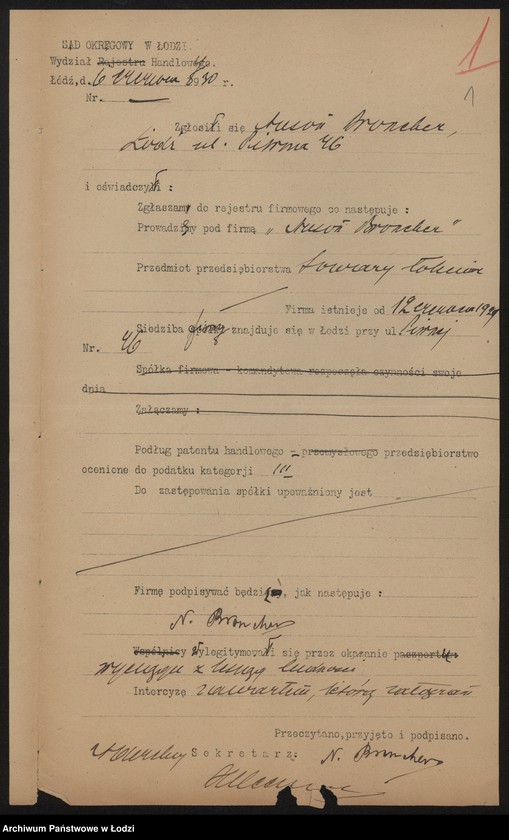 1
1
SĄD OKRĘGOWY W ŁODZI.
Wydział Rejestru Handlowego.
Łódź, d. 6 czerwca 1930 r.
Nr.
Zgłosił się Nusoń Broncher,
Łódź ul. Piotrkowska 46
i oświadczył :
Zgłaszam do rejestru firmowego co następuje :
Prowadzę pod firmą „Nusoń Broncher"
Przedmiot przedsiębiorstwa towary łokciowe
Firma istnieje od 12 czerwca 19
Siedziba firmy znajduje się w Łodzi przy ul.
Nr. 46
Spółka firmowa - komandytowa rozpoczęła czynności swoje
dnia
Załączamy :
Podług patentu handlowego - przemysłowego przedsiębiorstwo
ocenione do podatku kategorji III
Do zastępowania spółki upoważniony jest
Firmę podpisywać będzie, jak następuje :
N. Broncher
Wspólnicy wylegitymował się przez okazanie paszportu:
wyciągu z ksiąg ludności
Intercyzę zawarłem, którą załączam
Przeczytano, przyjęto i podpisano.
Sekretarz: N. Broncher
Archiwum Państwowe w Łodzi